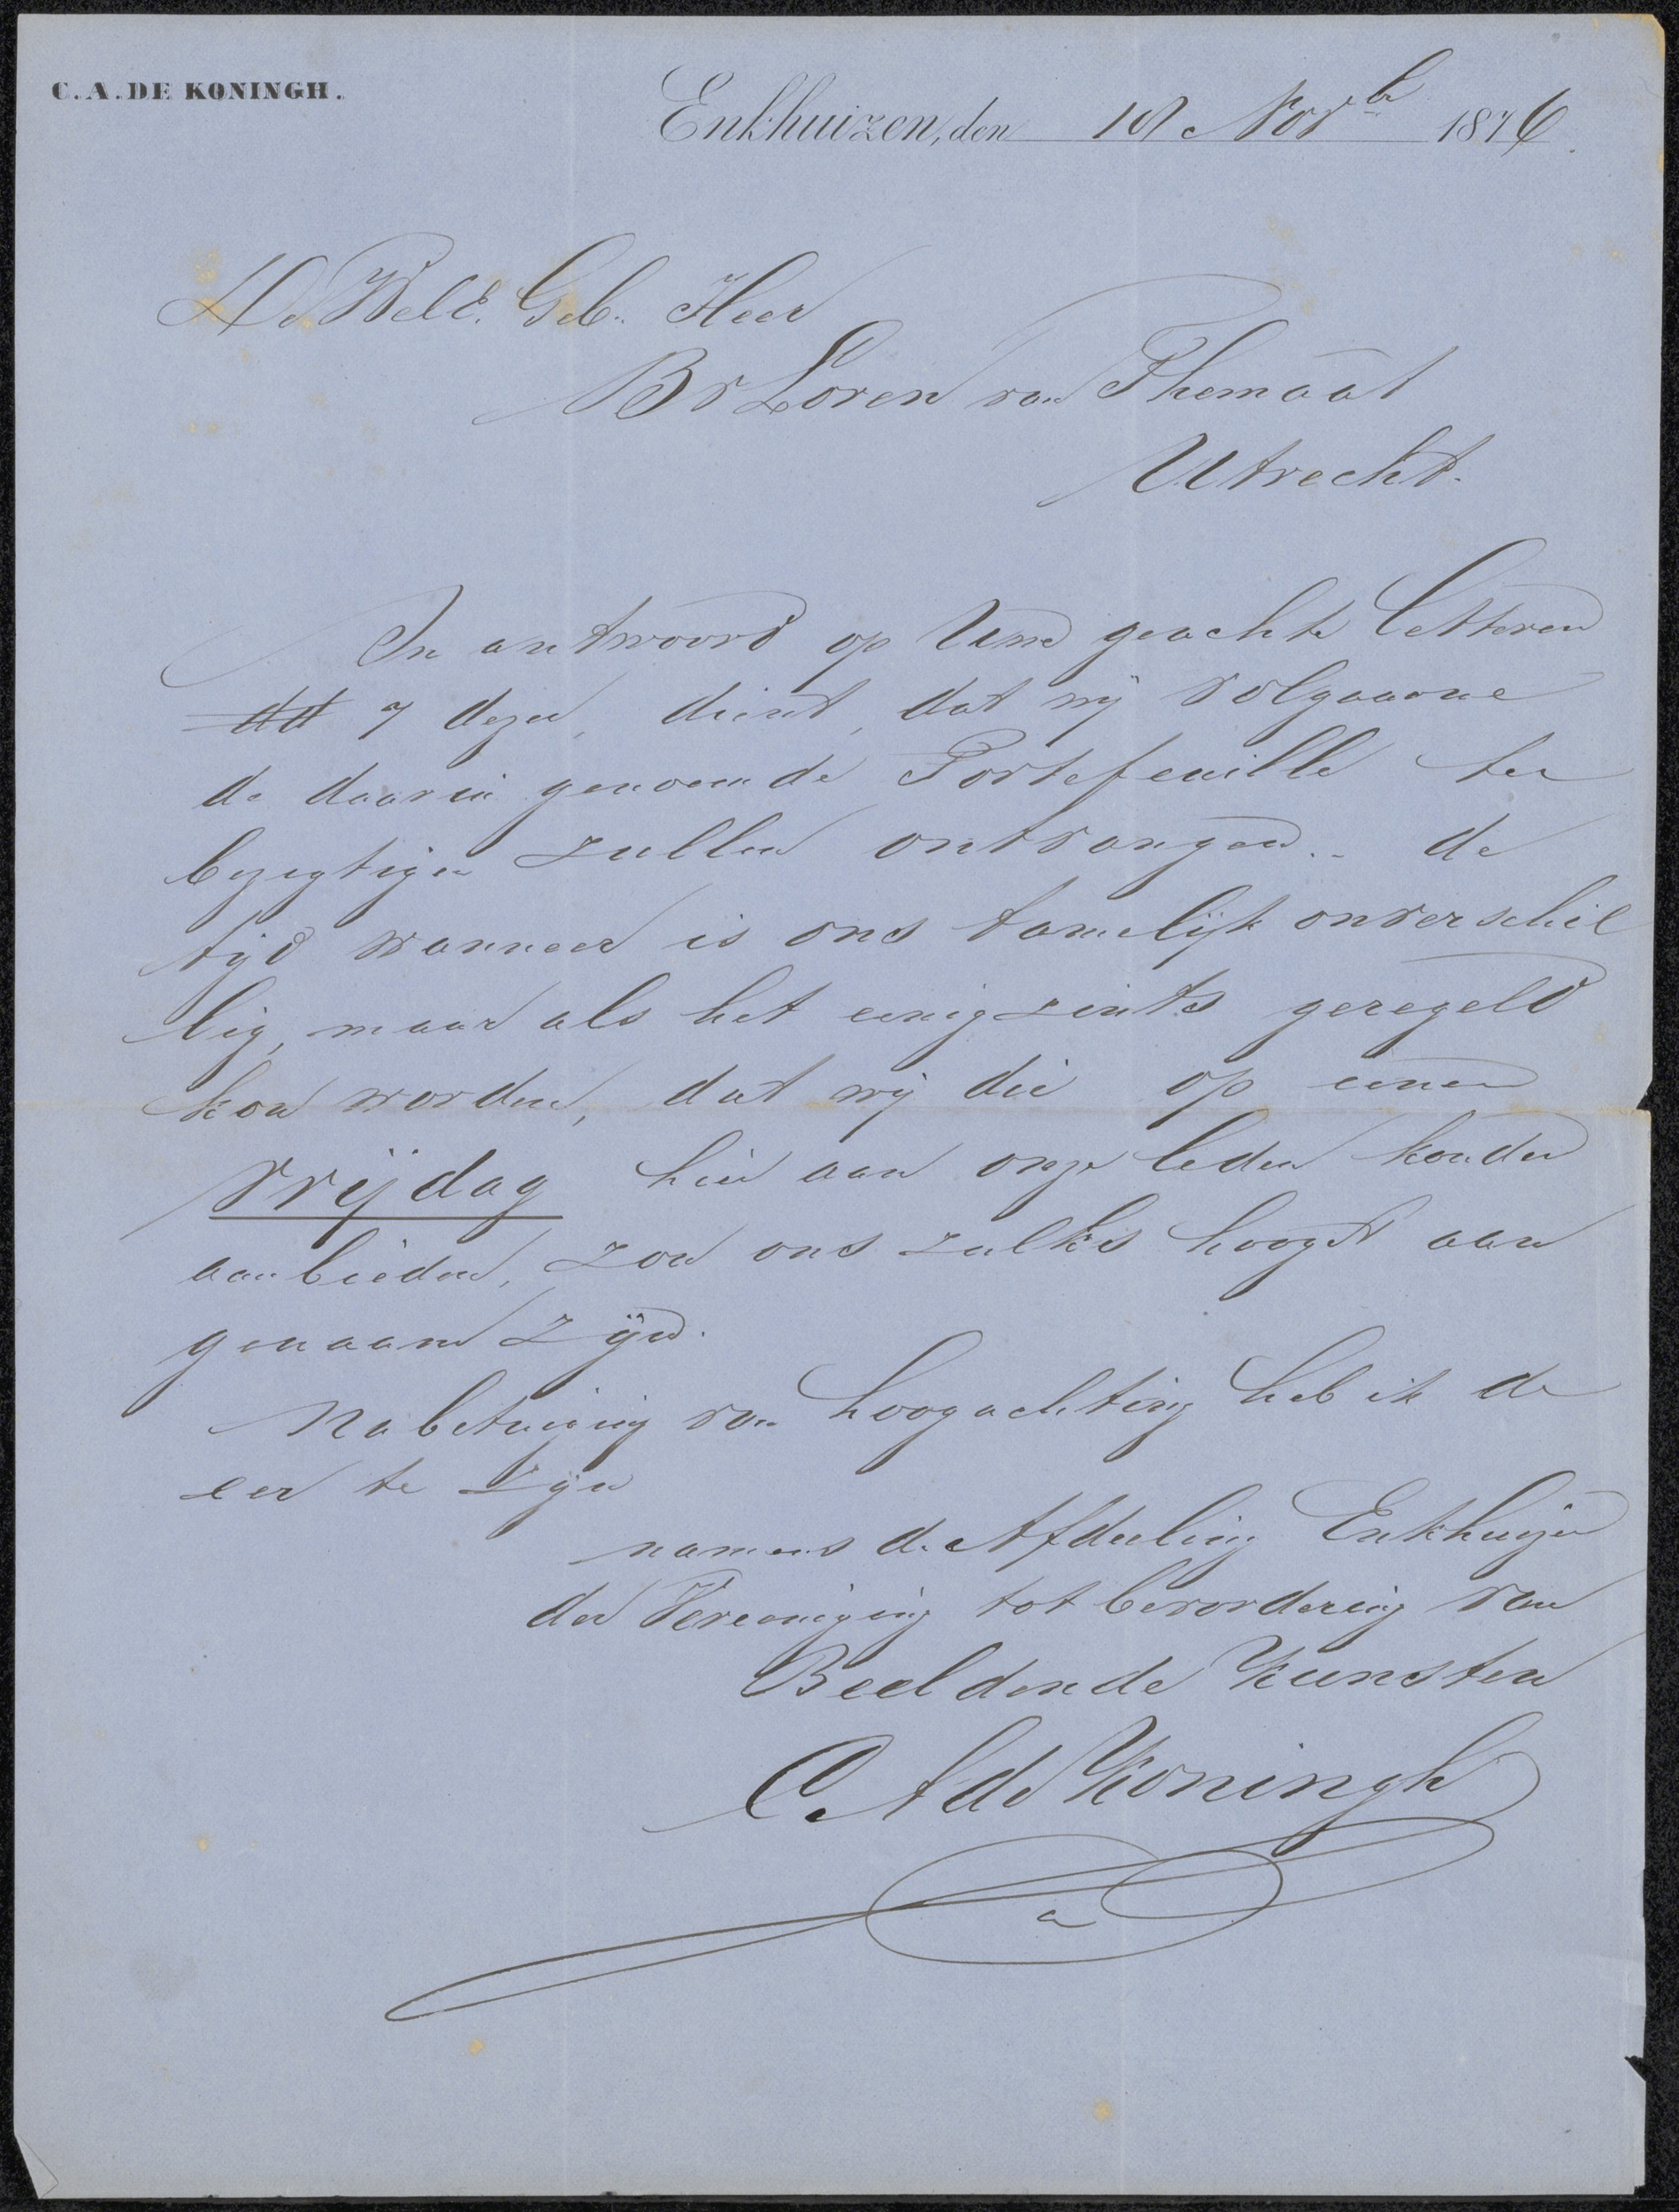 C. A. DE KONINGH.
Enkhuizen, den 10 Nov br 1876.
Wel E. Geb. Heer
Br Loren van Themaat
Utrecht.
In antwoord op Uwe geachte letteren
dd 7 dezer, dient, dat wij volgaarne
de daarin genoemde Portefeuille ter
bezigtigen zullen ontvangen. - de
tijd wanneer is ons tamelijk onverschil
lig, maar als het eenigzints geregeld
kon worden, dat wij die op eenen
vrijdag hier aan onze leden konden
aanbieden, zou ons zulks hoogst aan
genaam zijn.
Na betuiging van hoogachting heb ik de
eer te zijn
namens de Afdeeling Enkhuizen
der Vereeniging tot bevordering van
Beeldende Kunsten
C A de Koningh